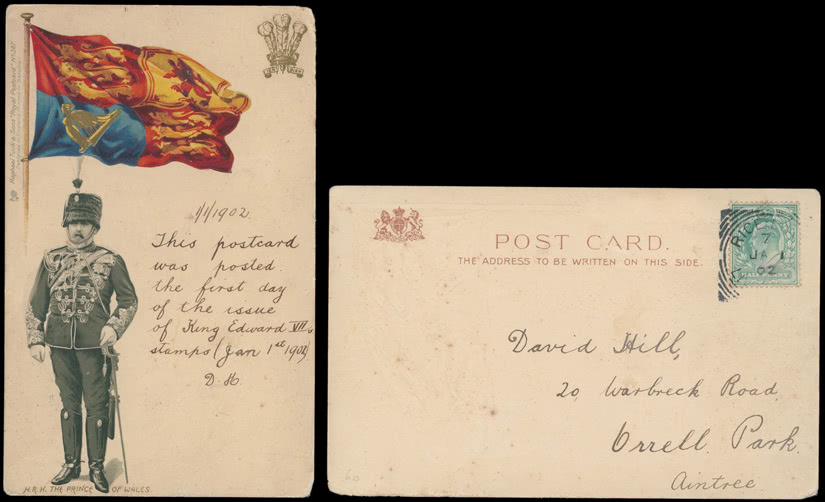 Raphael Tuck & Sons "Royal Postcard" No
1/1/1902.
This postcard
was posted
the first day
of the issue
of King Edward VII's
stamps (Jan 1st 1902)
D. H.
H.R.H. THE PRINCE OF WALES
POST CARD.
THE ADDRESS TO BE WRITTEN ON THIS SIDE.
7
JA 1
02
HALFPENNY
David Hill,
20, Warbreck Road,
Orrell Park.
Aintree